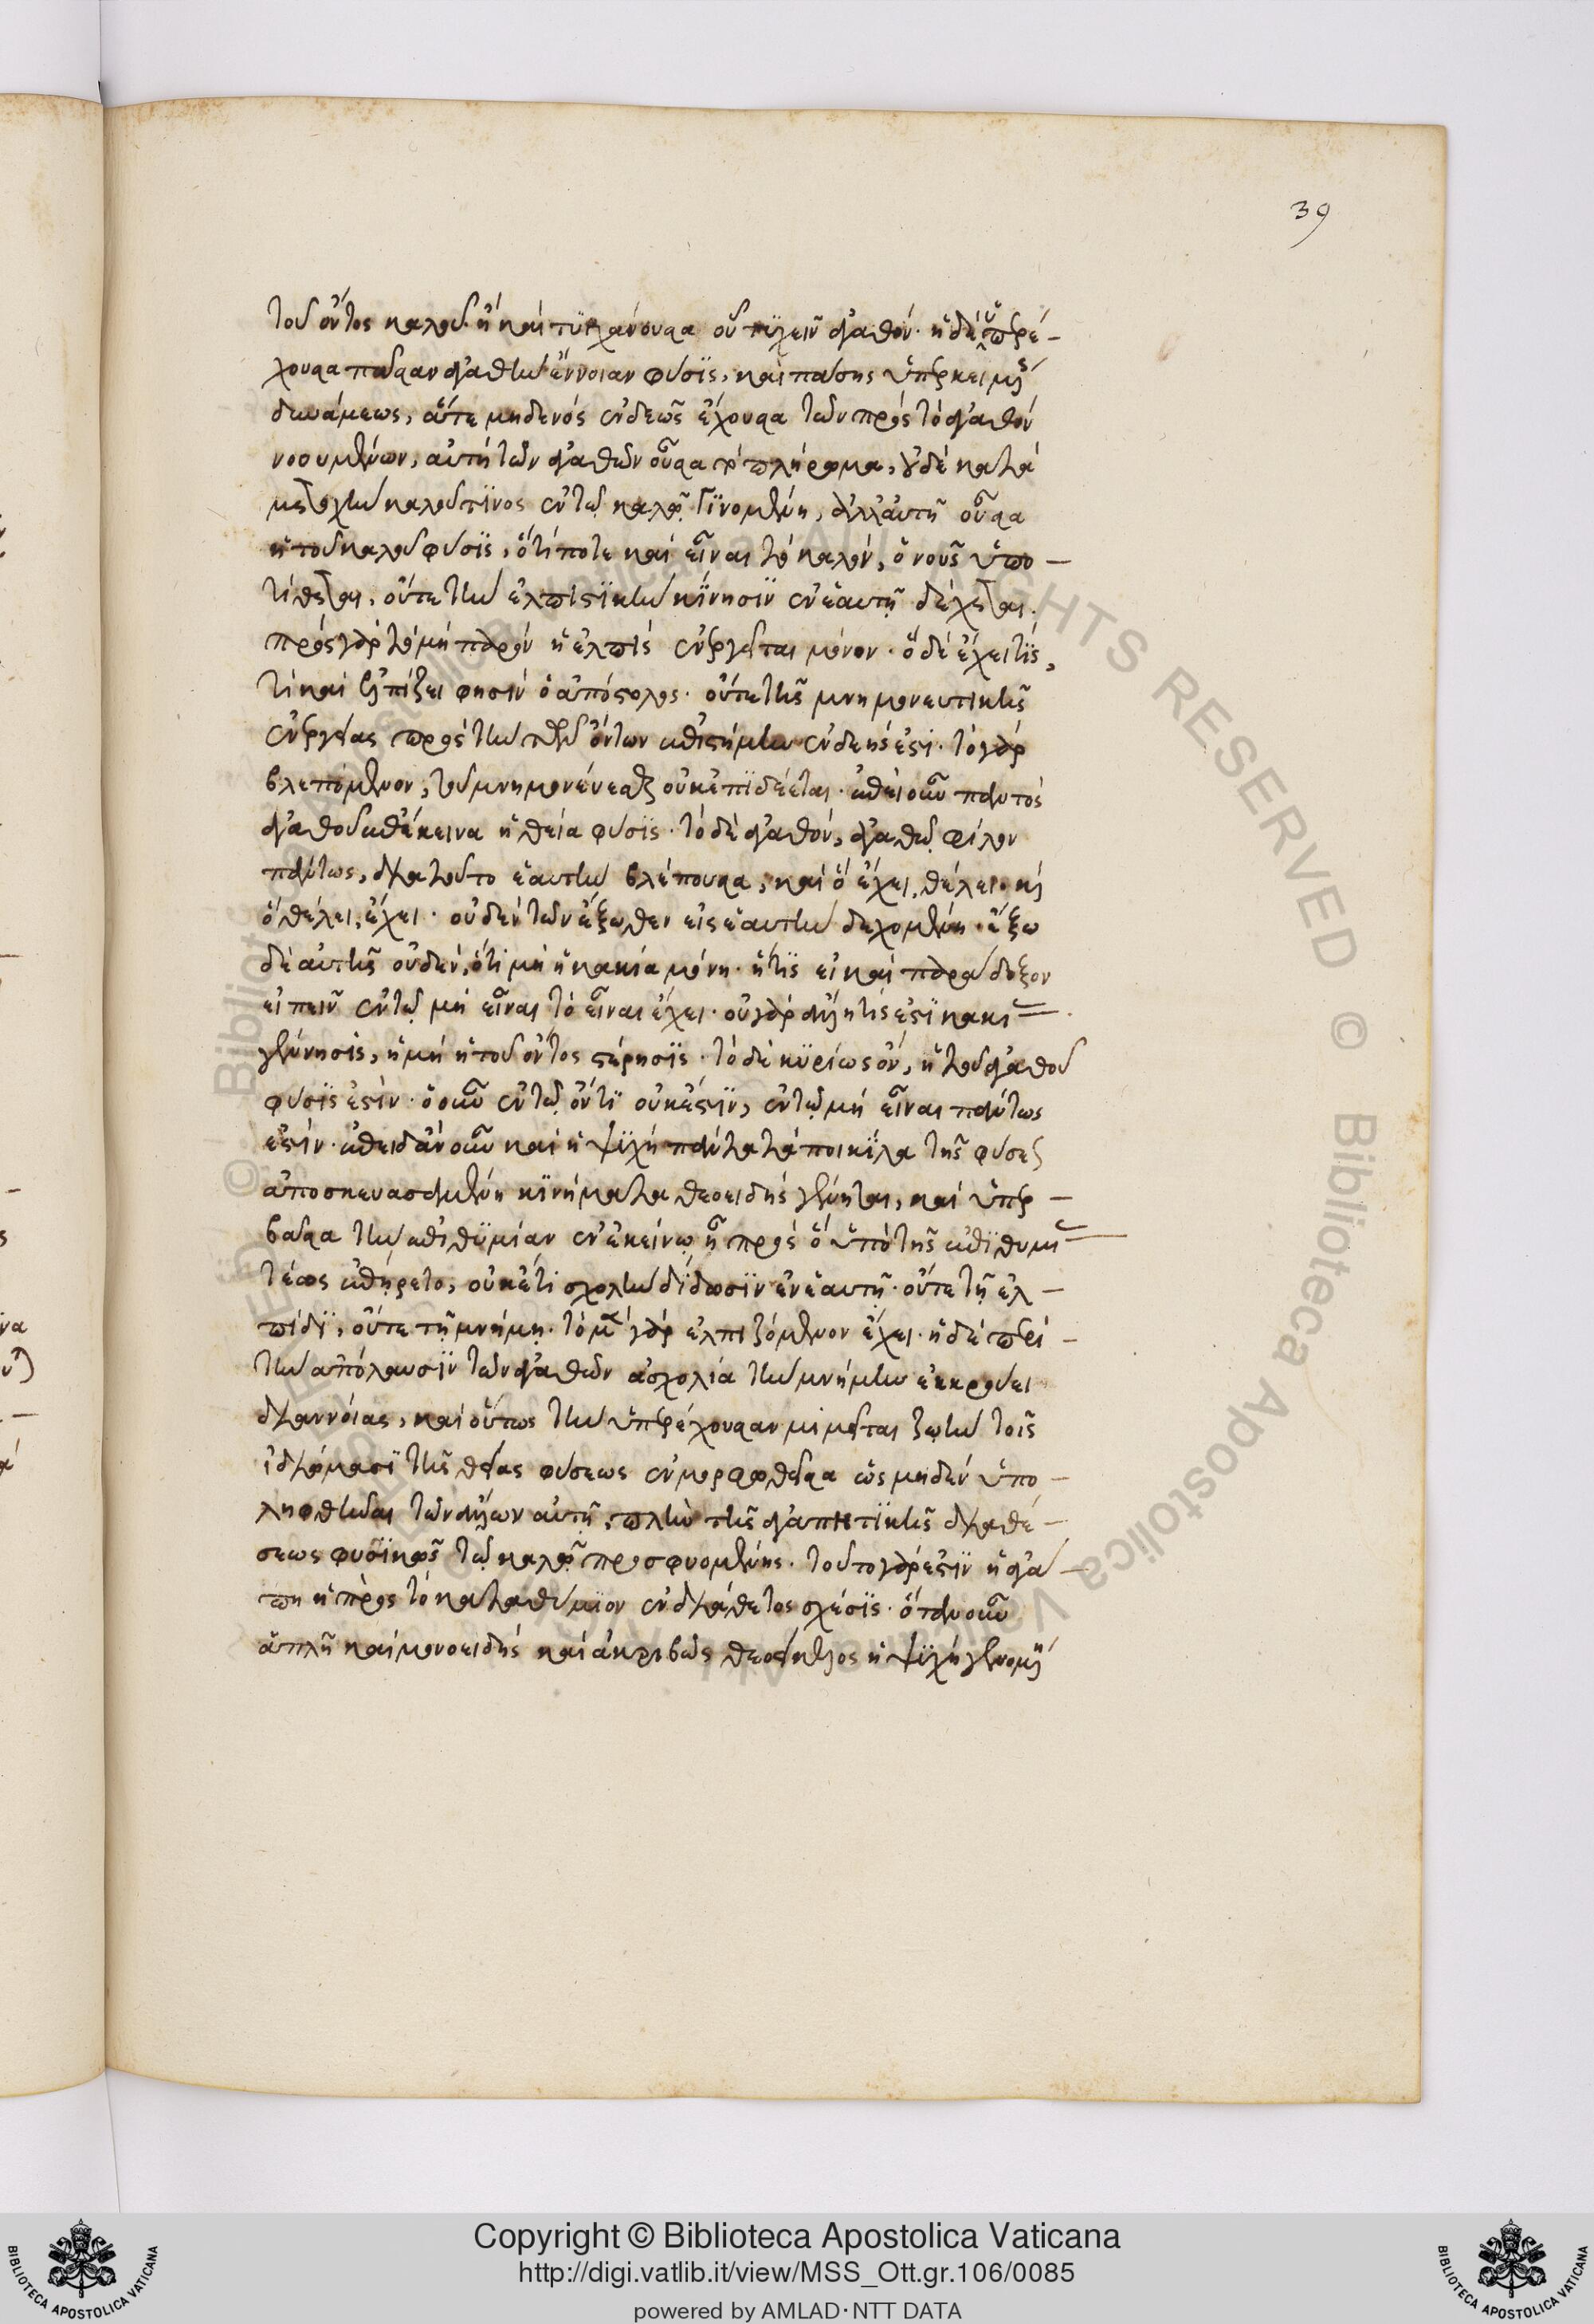 39
τοῦ ὄντος καλοῦ· ἢ καὶ τυγχάνουσα οὗ τυχεῖν ἀγαθόν· ἡ δὲ ὑπερέ-
χουσα πᾶσαν ἀγαθὴν ἔννοιαν φύσϊς, καὶ πάσης ὑπερκειμένης
δυνάμεως, ἅτε μηδενὸς ἐνδεῶς ἔχουσα τῶν πρὸς τὸ ἀγαθὸν
νοουμένων, αὐτὴ τῶν ἀγαθῶν οὖσα τὸ πλήρωμα, οὐδὲ κατὰ
μετοχὴν καλοῦ τϊνος ἐν τῷ καλῷ γϊνομένη, ἀλλ' αὐτὴ οὖσα
ἡ τοῦ καλοῦ φύσϊς, ὅτί ποτε καὶ εἶναι τὸ καλὸν, ὁ νοῦς ὑπο-
τίθεται, οὔτε τὴν ἐλπιστϊκὴν κίνησϊν ἐν ἑαυτῇ δέχεται.
πρὸς γὰρ τὸ μὴ παρὸν ἡ ἐλπὶς ἐνεργεῖται μόνον· ὃ δὲ ἔχει τϊς,
τί καὶ ἐλπίζει φησὶν ὁ ἀπόστολος· οὔτε τῆς μνημονευτικῆς
ἐνεργείας πρὸς τὴν τῶν ὄντων ἐπιστήμην ἐνδεής ἐστι· τὸ γὰρ
βλεπόμενον, τοῦ μνημονεύεσθαι οὐκ ἐπϊδέεται· ἐπεὶ οὖν παντὸς
ἀγαθοῦ ἐπέκεινα ἡ θεία φύσϊς· τὸ δὲ ἀγαθὸν, ἀγαθῷ φίλον
πάντως, διατοῦτο ἑαυτὴν βλέπουσα, καὶ ὃ ἔχει, θέλει· καὶ
ὃ θέλει, ἔχει· οὐδὲν τῶν ἔξωθεν εἰς ἑαυτὴν δεχομένη· ἔξω
δὲ αὐτῆς οὐδὲν, ὅτι μὴ ἡ κακία μόνη· ἥτϊς εἰ καὶ παράδοξον
εἰπεῖν ἐν τῷ μὴ εἶναι τὸ εἶναι ἔχει· οὐ γὰρ ἄλλη τίς ἐστϊ κακίας
γένησις, ἢ μὴ ἡ τοῦ ὄντος στέρησϊς· τὸ δὲ κϋρίως ὂν, ἡ τοῦ ἀγαθοῦ
φύσϊς ἐστὶν· ὃ οὖν ἐν τῷ ὄντϊ οὐκ ἔστϊν, ἐν τῷ μὴ εἶναι πάντως
ἐστίν· ἐπειδὰν οὖν καὶ ἡ ψϋχὴ πάντα τὰ ποικίλα τῆς φύσεως
ἀποσκευασαμένη κϊνήματα θεοειδὴς γένηται, καὶ ὑπερ-
βᾶσα τὴν ἐπιθϋμίαν ἐν ἐκείνῳ ᾖ πρὸς ὃ ὑπὸ τῆς ἐπϊθυμίας
τέως ἐπῄρετο, οὐκέτϊ σχολὴν δίδωσϊν ἐν ἑαυτῇ· οὔτε τῇ ἐλ-
πίδϊ, οὔτε τῇ μνήμῃ· τὸ μὲν γὰρ ἐλπιζόμενον ἔχει· ἡ δὲ περὶ
τὴν ἀπόλαυσϊν τῶν ἀγαθῶν ἀσχολία τὴν μνήμην ἐκκρούει
διαννοίας, καὶ οὕτως τὴν ὑπερέχουσαν μιμεῖται ζωὴν τοῖς
ἰδιώμασϊ τῆς θείας φύσεως ἐνμορφωθεῖσα ὡς μηδὲν ὑπο-
ληφθῆναι τῶν ἄλλων αὐτῇ, πλὴν τῆς ἀγαπητϊκῆς διαθέ-
σεως φυσϊκῶς τῷ καλῷ προσφυομένης. τοῦτο γάρ ἐστϊν ἡ ἀγά-
πη ἡ πρὸς τὸ καταθύμϊον ἐνδιάθετος σχέσϊς· ὅταν οὖν
ἁπλῆ καὶ μονοειδὴς καὶ ἀκριβῶς θεοείκελος ἡ ψϋχὴ γενομένη
Copyright © Biblioteca Apostolica Vaticana
http://digi.vatlib.it/view/MSS_Ott.gr.106/0085
powered by AMLAD·NTT DATA